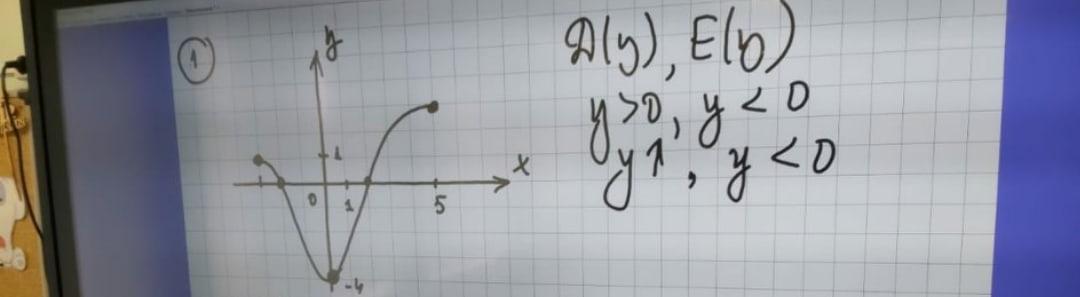 1
y
D(y), E(y)
y>0, y<0
y↑, y<0
1
x
0
1
5
-4